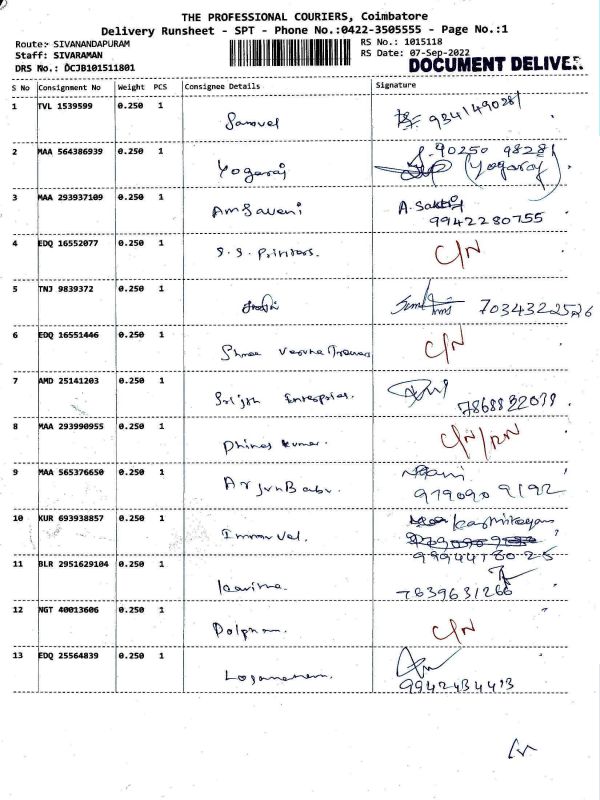 THE PROFESSIONAL COURIERS, Coimbatore
Delivery Runsheet - SPT - Phone No.:0422-3505555 - Page No.:1
Route:- SIVANANDAPURAM
RS No.: 1015118
Staff: SIVARAMAN
RS Date: 07-Sep-2022
DRS No.: DCJB101511801
DOCUMENT DELIVER
S No Consignment No Weight PCS Consignee Details Signature
1 TVL 1539599 0.250 1 9341490281
2 MAA 564386939 0.250 1 Yogaraj 90250 98281 (Yogaraj)
3 MAA 293937109 0.250 1 A. Sakthi
9942280755
4 EDQ 16552077 0.250 1 S.S. Printers. C/N
5 TNJ 9839372 0.250 1 7034322526
6 EDQ 16551446 0.250 1 Shree C/N
7 AMD 25141203 0.250 1 7868832039
8 MAA 293990955 0.250 1 Dhines kumar. C/N/RN
9 MAA 565376650 0.250 1 Arjun Babu. 979090 9192
10 KUR 693938857 0.250 1
9994418025
11 BLR 2951629104 0.250 1 7639631266
12 NGT 40013606 0.250 1 C/N
13 EDQ 25564839 0.250 1 9942434413